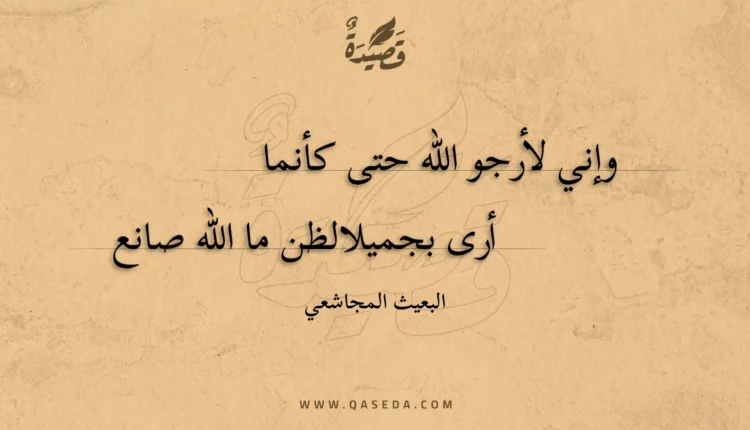 قَصِيْدَةٌ
وإني لأرجو الله حتى كأنما
أرى بجميلالظن ما الله صانع
البعيث المجاشعي
WWW.QASEDA.COM